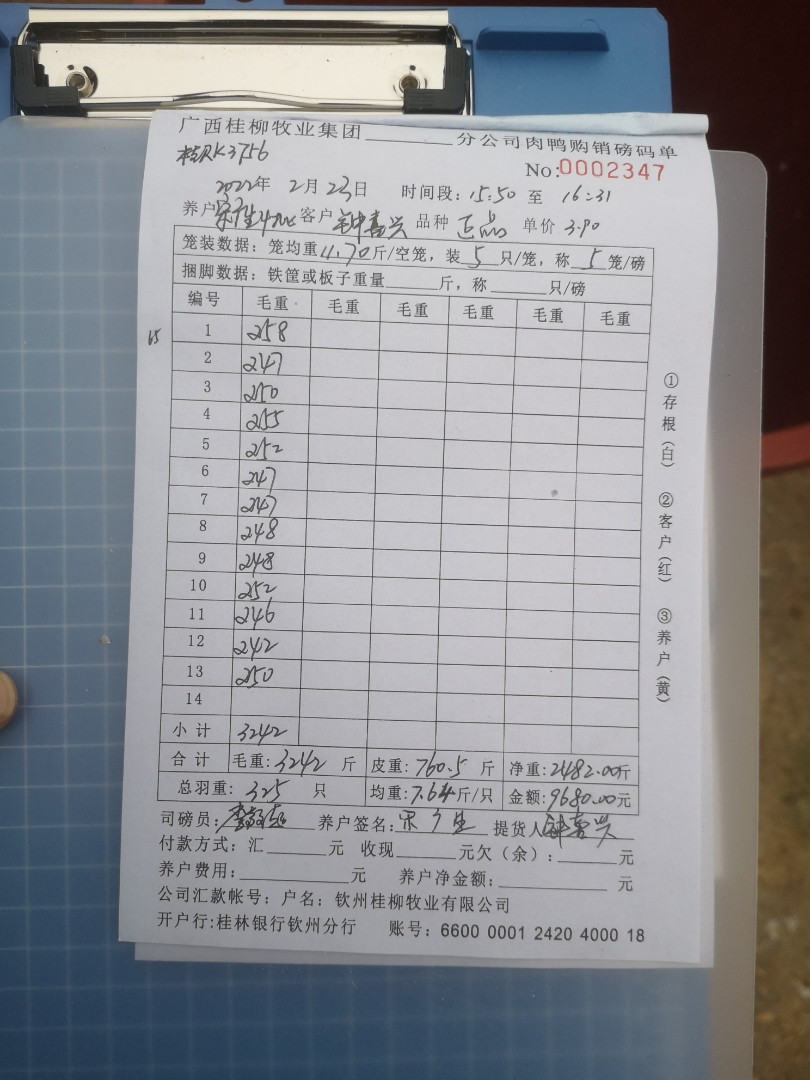 广西桂柳牧业集团________分公司肉鸭购销磅码单
桂RK3756
No:0002347
2022年 2月23日 时间段: 15:50 至 16:31
养户 客户 钟喜兴 品种 正品 单价 3.90
笼装数据: 笼均重11.70斤/空笼, 装 5 只/笼, 称 5 笼/磅
捆脚数据: 铁筐或板子重量______斤, 称______只/磅
编号 毛重 毛重 毛重 毛重 毛重 毛重
65
1 258
2 247
3 250
4 255
5 252
6 247
7 247
8 248
9 248
10 252
11 246
12 242
13 250
14
小计 3242
合计 毛重: 3242 斤 皮重: 760.5 斤 净重: 2482.00斤
总羽重: 325 只 均重: 7.64斤/只 金额: 9680.00元
司磅员: 养户签名: 提货人 钟喜兴
付款方式: 汇______元 收现______元欠(余): ______元
养户费用: __________元 养户净金额: __________元
公司汇款帐号: 户名: 钦州桂柳牧业有限公司
开户行:桂林银行钦州分行 账号: 6600 0001 2420 4000 18
①存根(白) ②客户(红) ③养户(黄)